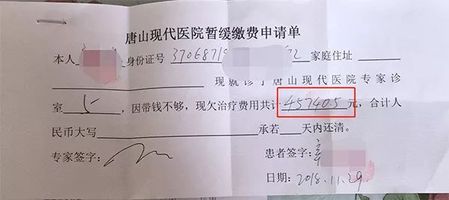 唐山现代医院暂缓缴费申请单
本人 身份证号 370687 2 家庭住址
现就诊于唐山现代医院专家诊
室 5 ,因带钱不够,现欠治疗费用共计 45740.5 元,合计人
民币大写 承若 天内还清。
专家签字: 患者签字:
日期: 2018.11.29